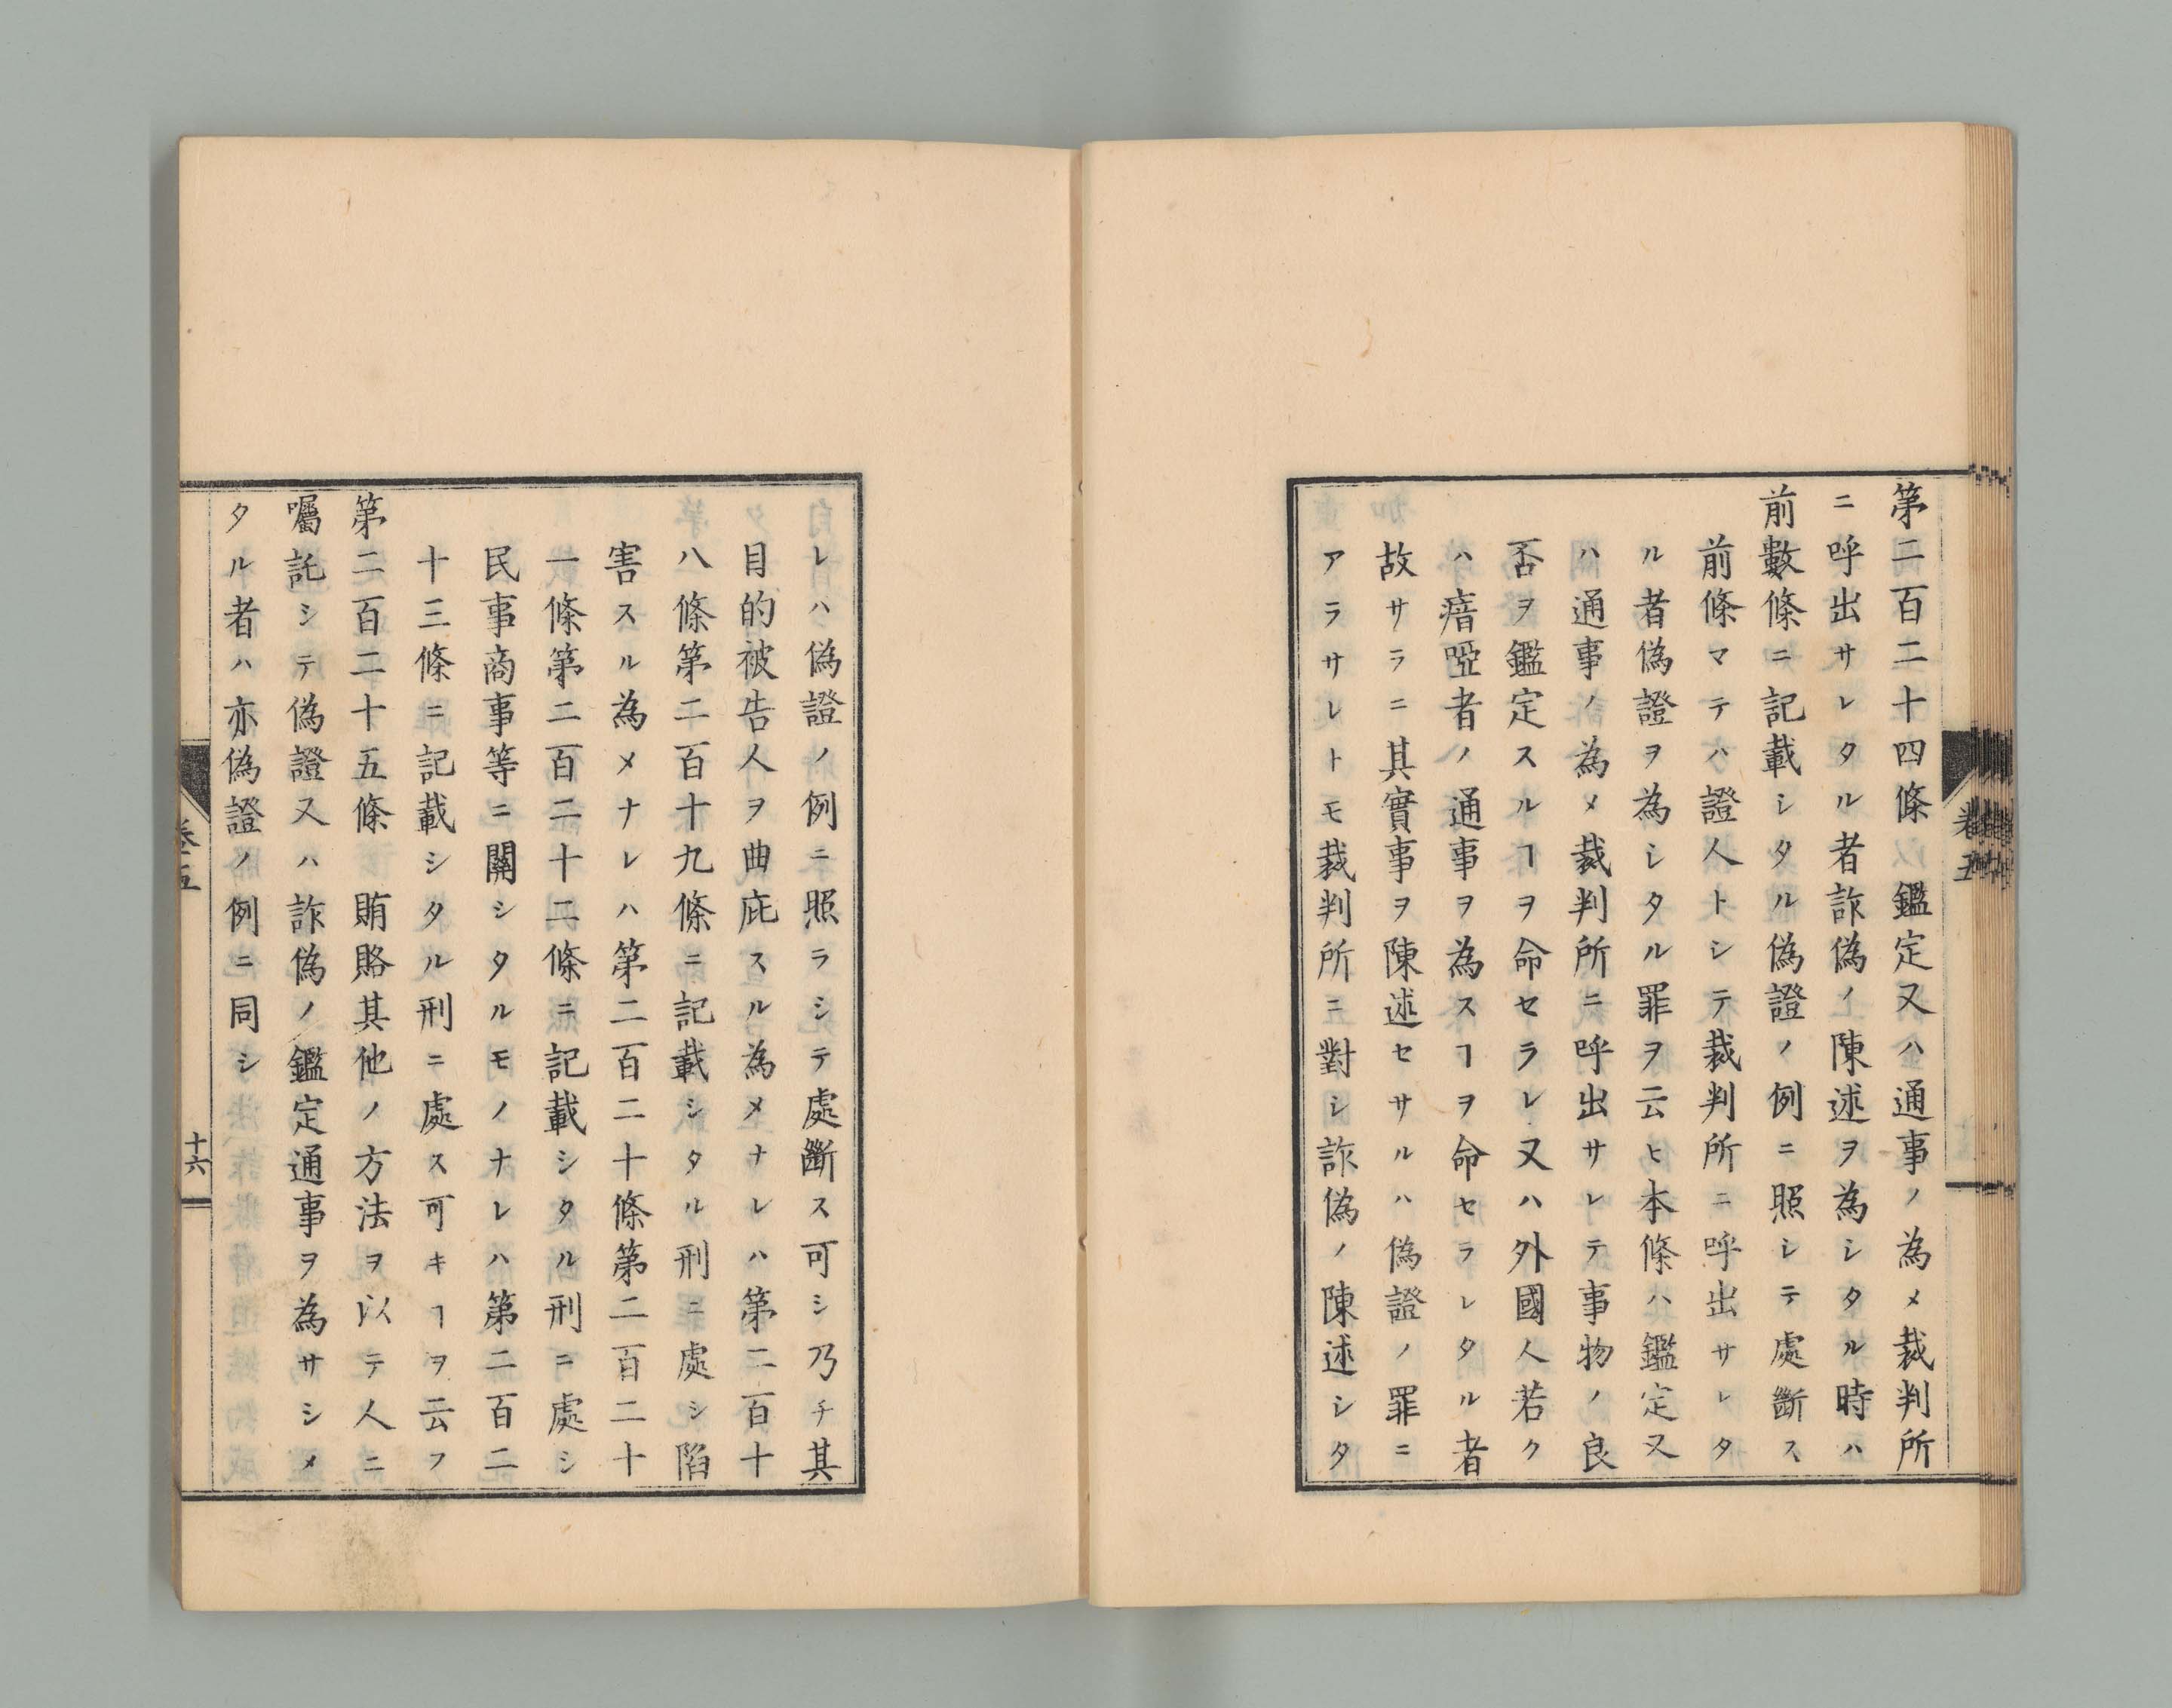 第二百二十四條鑑定又ハ通事ノ為メ裁判所
ニ呼出サレタル者詐偽ノ陳述ヲ為シタル時ハ
前數條ニ記載シタル偽證ノ例ニ照シテ處斷ス
前條マテハ證人トシテ裁判所ニ呼出サレタ
ル者偽證ヲ為シタル罪ヲ云ヒ本條ハ鑑定又
ハ通事ノ為メ裁判所ニ呼出サレテ事物ノ良
否ヲ鑑定スルヿヲ命セラレ又ハ外國人若ク
ハ瘖啞者ノ通事ヲ為スヿヲ命セラレタル者
故サラニ其實事ヲ陳述セサルハ偽證ノ罪ニ
アラサレトモ裁判所ニ對シ詐偽ノ陳述シタ
卷五
レハ偽證ノ例ニ照ラシテ處斷ス可シ乃チ其
目的被告人ヲ曲庇スル為メナレハ第二百十
八條第二百十九條ニ記載シタル刑ニ處シ陷
害スル為メナレハ第二百二十條第二百二十
一條第二百二十二條ニ記載シタル刑ニ處シ
民事商事等ニ關シタルモノナレハ第二百二
十三條ニ記載シタル刑ニ處ス可キヿヲ云フ
第二百二十五條賄賂其他ノ方法ヲ以テ人ニ
囑託シテ偽證又ハ詐偽ノ鑑定通事ヲ為サシメ
タル者ハ亦偽證ノ例ニ同シ
卷五
十六